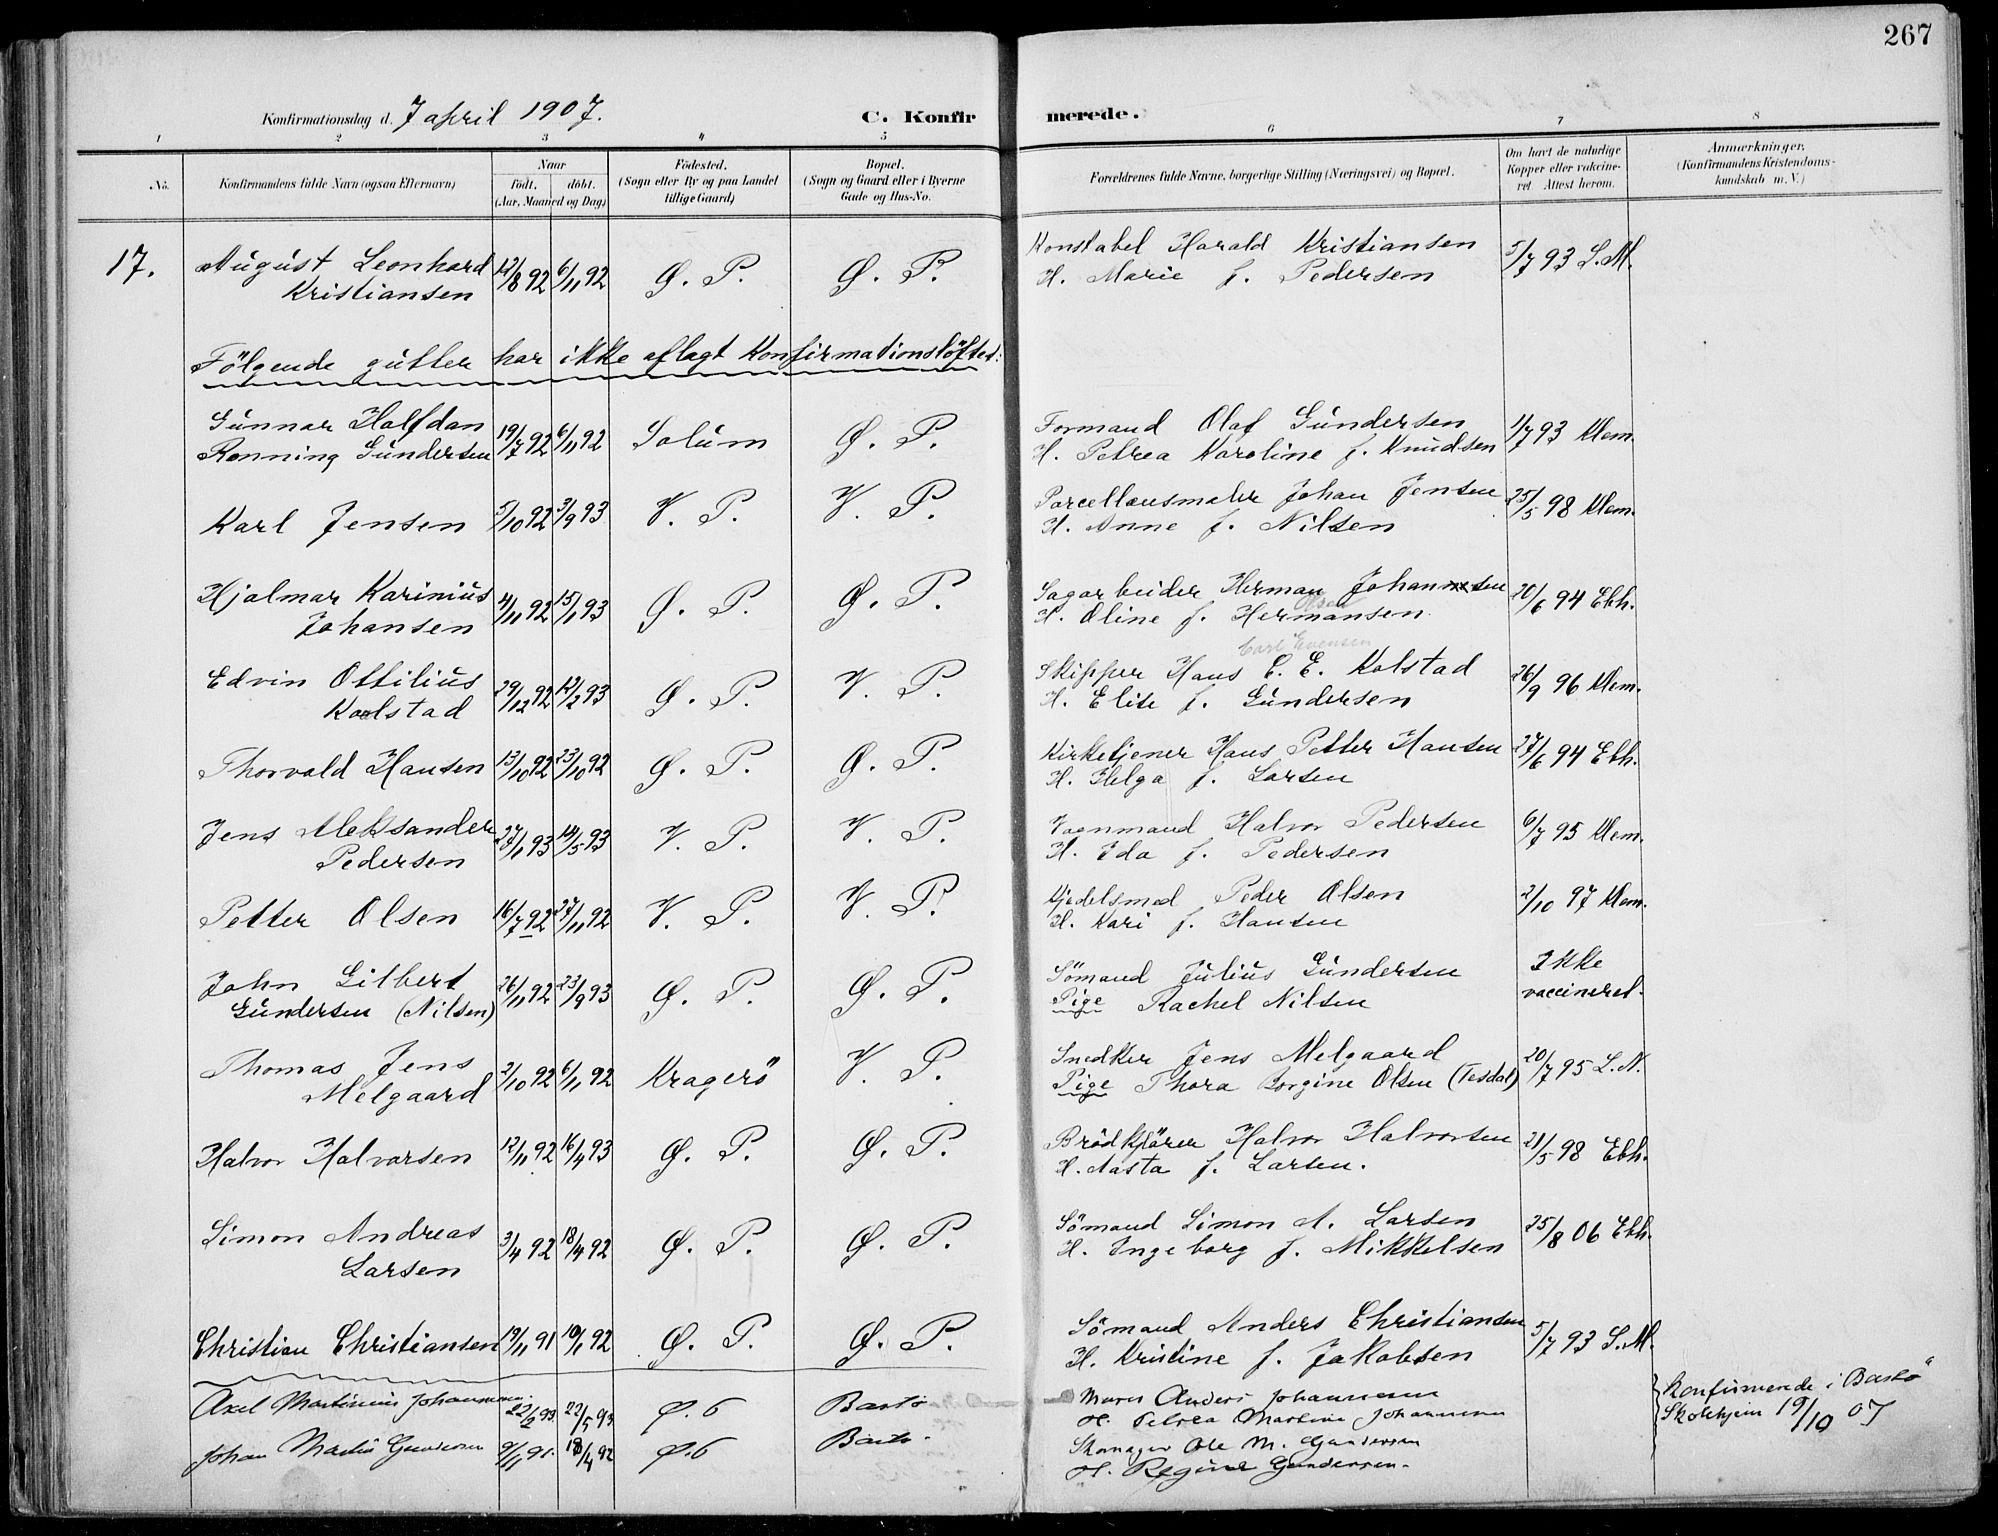 267
Konfirmationsdag d. 7 april 1907.
C. Konfirmerede.
1 2 3 4 5 6 7 8
No.
Konfirmandens fulde Navn (ogsaa Efternavn)
Naar
født. døbt.
(Aar, Maaned og Dag)
Fødested.
(Sogn eller By og paa Landet
tillige Gaard)
Bopæl.
(Sogn og Gaard eller i Byerne
Gade og Hus-No.
Forældrenes fulde Navne, borgerlige Stilling (Næringsvei) og Bopæl.
Om havt de naturlige
Kopper eller vakcine-
ret Attest herom.
Anmærkninger.
(Konfirmandens Kristendoms-
kundskab m. V.)
17. August Leonhard Kristiansen 12/8 92 6/11 92 Ø. P. Ø. P.
Konstabel Harald Kristiansen
H. Marie f. Pedersen
5/7 93 L. M.
Følgende gutter har ikke aflagt Konfirmationsløftet:
Gunnar Halfdan Rønning Gundersen 19/7 92 6/11 92 Solum Ø. P.
Formand Olaf Gundersen
H. Petrea Karoline f. Knudsen
1/7 93 Klem.
Karl Jensen 5/10 92 3/9 93 V. P. V. P.
Porcellænsmaler Johan Jensen
H. Anne f. Nilsen
25/5 98 Klem.
Hjalmar Karinius Johansen 4/11 92 15/1 93 Ø. P. Ø. P.
Sagarbeider Herman Johansen
H. Oline f. Hermansen Olsen
20/6 94 Ebh.
Edvin Ottilius Kolstad 29/12 92 12/2 93 Ø. P. V. P.
Carl Evensen
Skipper Hans C. E. Kolstad
H. Elise f. Gundersen
26/9 96 Klem.
Thorvald Hansen 13/10 92 23/10 92 Ø. P. Ø. P.
Kirketjener Hans Petter Hansen
H. Helga f. Larsen
27/6 94 Ebh.
Jens Aleksander Pedersen 27/1 93 14/5 93 V. P. V. P.
Vognmand Halvor Pedersen
H. Ida f. Pedersen
6/7 95 Klem.
Petter Olsen 16/7 92 27/11 92 V. P. V. P.
Kjedelsmed Peder Olsen
H. Kari f. Hansen
2/10 97 Klem.
John Gilbert Gundersen (Nilsen) 26/11 92 23/9 93 Ø. P. Ø. P.
Sömand Julius Gundersen
Pige Rachel Nilsen
Ikke vaccineret.
Thomas Jens Melgaard 2/10 92 6/11 92 Kragerö V. P.
Snedker Jens Melgaard
Pige Thora Borgine Olsen (Tesdal)
20/7 95 L. N.
Halvor Halvorsen 12/11 92 16/4 93 Ø. P. Ø. P.
Brödkjörer Halvor Halvorsen
H. Aasta f. Larsen.
21/5 98 Ebh.
Simon Andreas Larsen 3/4 92 18/4 92 Ø. P. Ø. P.
Sömand Simon A. Larsen
H. Ingeborg f. Mikkelsen
25/8 06 Ebh.
Christian Christiansen 19/11 91 10/1 92 Ø. P. Ø. P.
Sömand Anders Christiansen
H. Kristine f. Jakobsen
5/7 93 L. M.
Axel Martinius Johannessen 22/2 93 22/5 93 Bastø
Murer Anders Johannesen
H. Petrea Martine Johannesen
Konfirmerede i Bastö
Skolehjem 19/10 07
Johan Martin Gundersen 9/11 91 18/4 92 Bastø.
Skomager Ole M. Gundersen
H. Regine Gundersen.